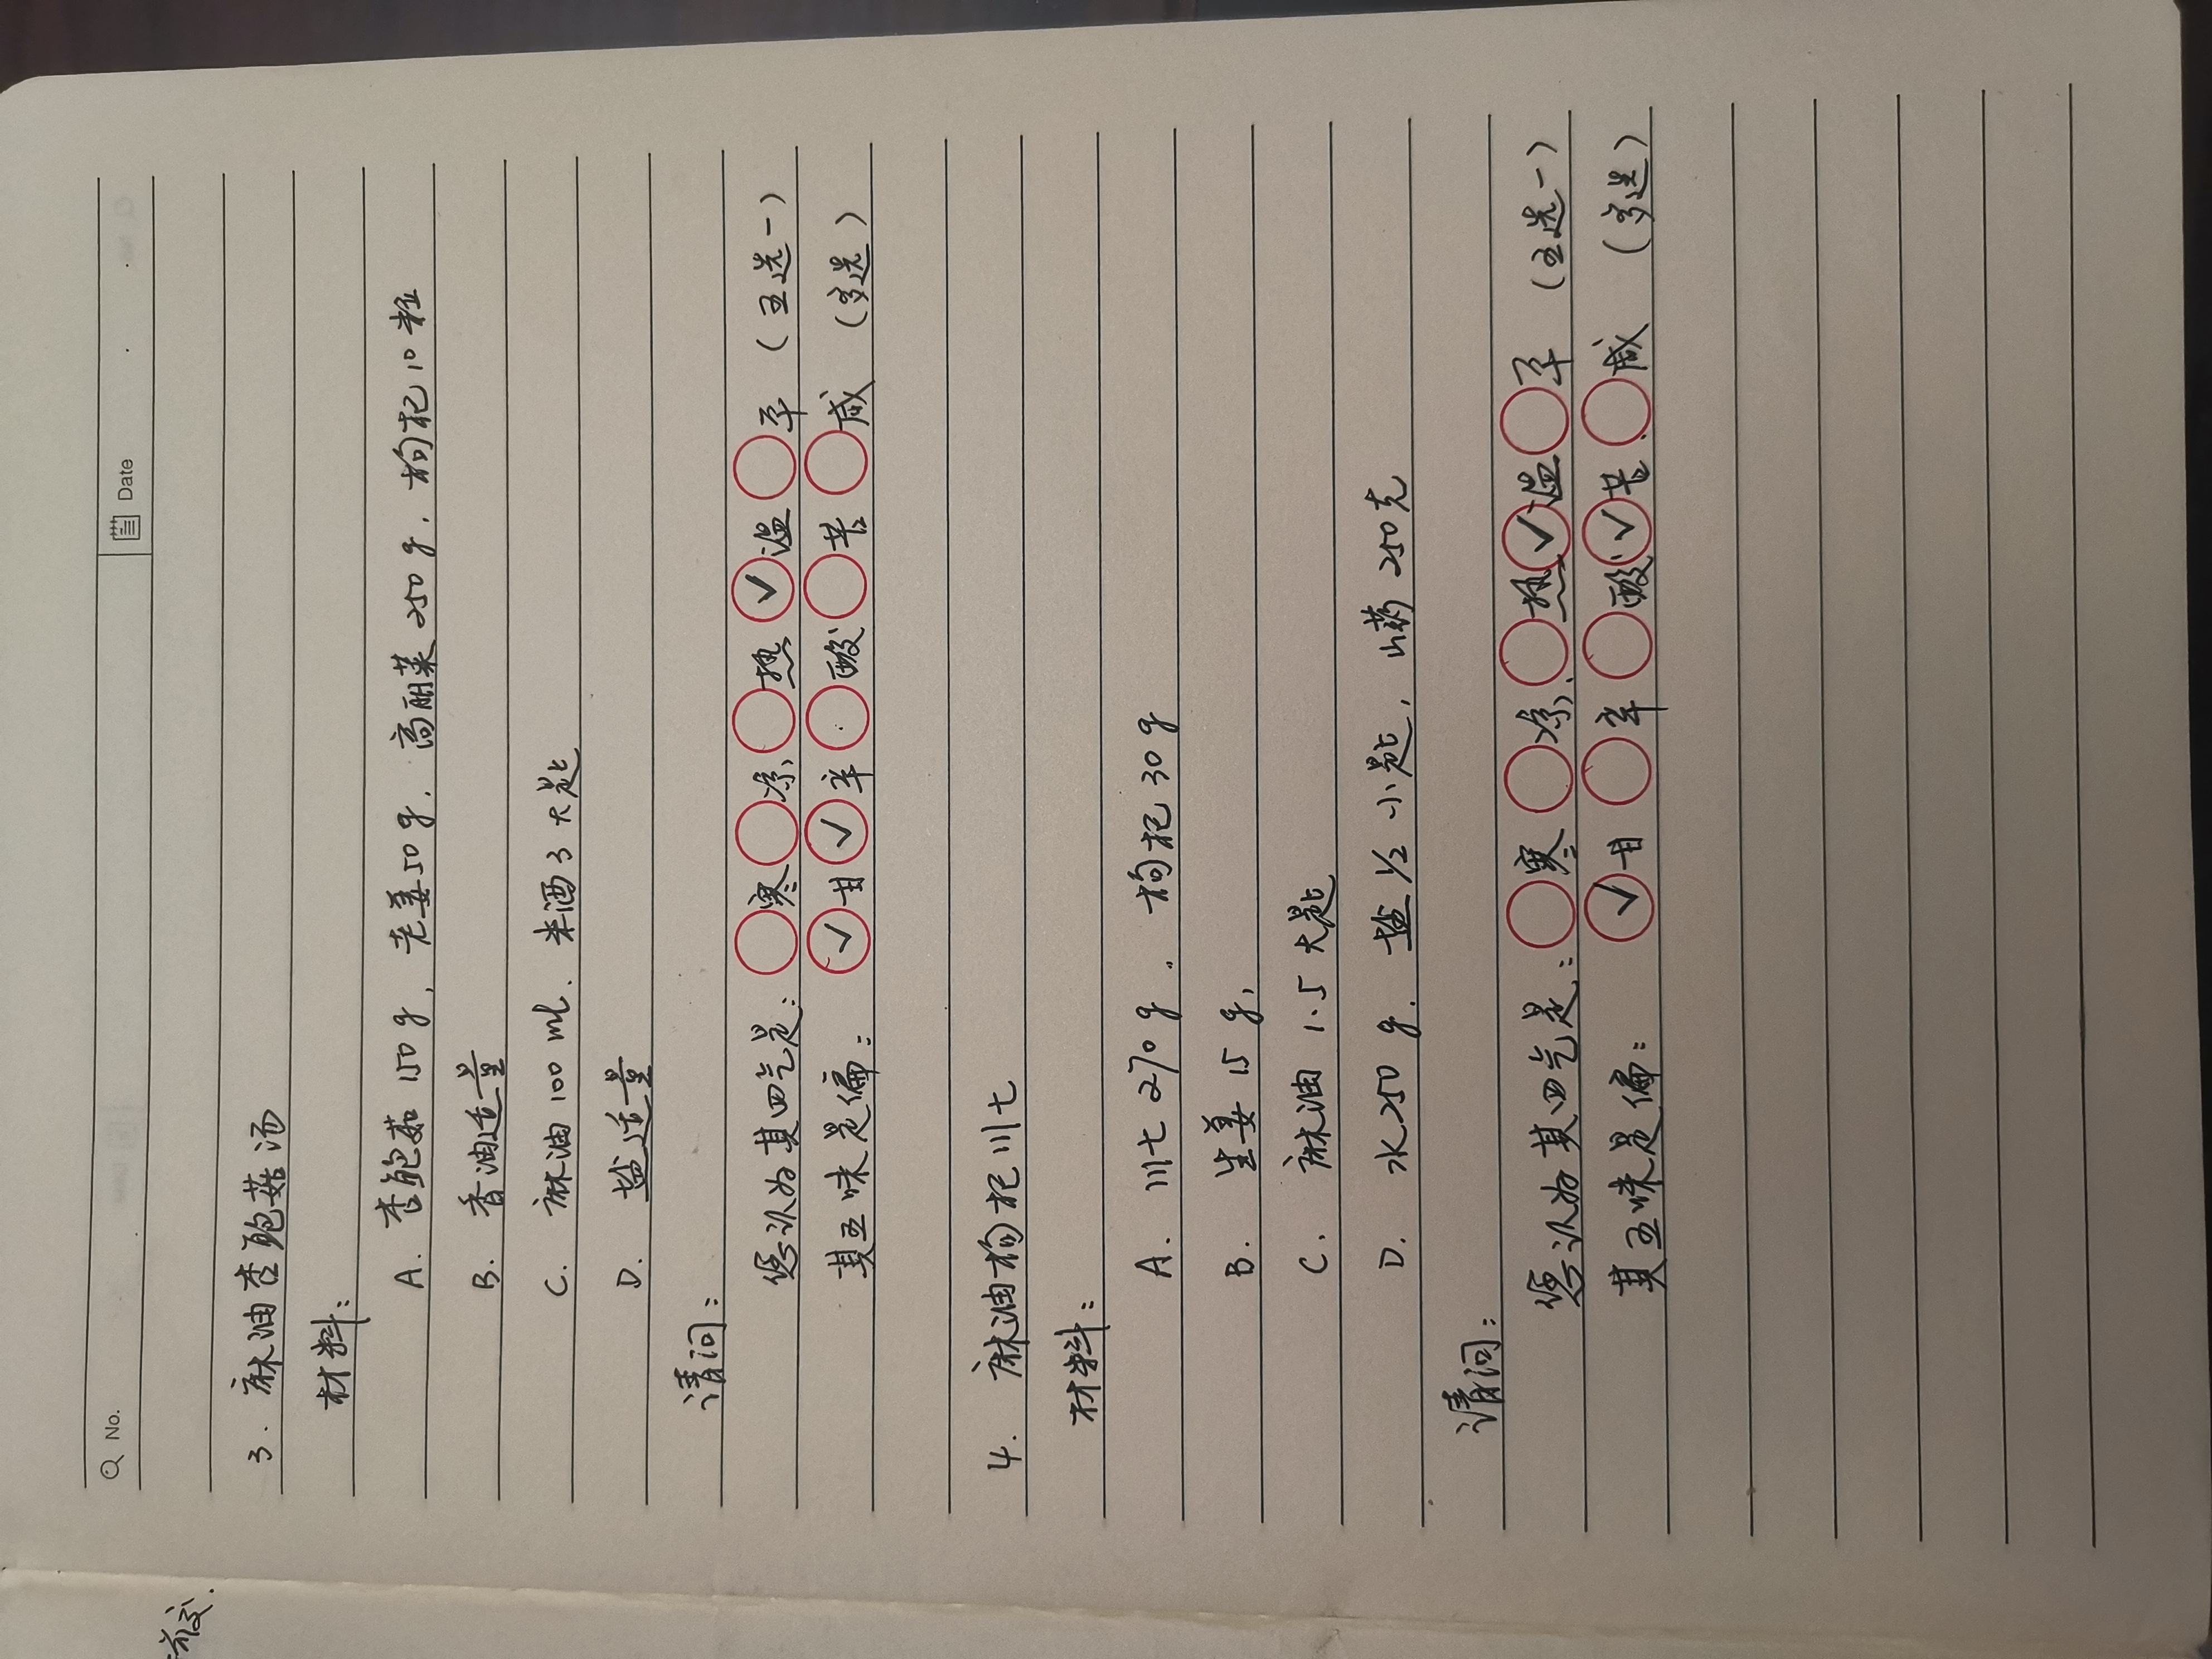 No. Date
3. 麻油杏鲍菇汤
材料:
A. 杏鲍菇 150 g, 老姜50 g, 高丽菜 250 g, 枸杞 10 粒
B. 香油适量
C. 麻油 100 ml、米酒 3 大匙
D. 盐适量
请问:
您认为其四气是: ○寒 ○凉、 ○热 ✓温 ○平 (五选一)
其五味是偏: ✓甘 ✓辛 ○酸 ○苦 ○咸 (多选)
4. 麻油枸杞川七
材料:
A. 川七 270 g, 枸杞 30 g
B. 生姜 15 g,
C. 麻油 1.5 大匙
D. 水 250 g, 盐 1/2 小匙, 山药 250克
请问:
您认为其四气是: ○寒 ○凉、 ○热 ✓温 ○平 (五选一)
其五味是偏: ✓甘 ○辛 ○酸 ✓苦 ○咸 (多选)